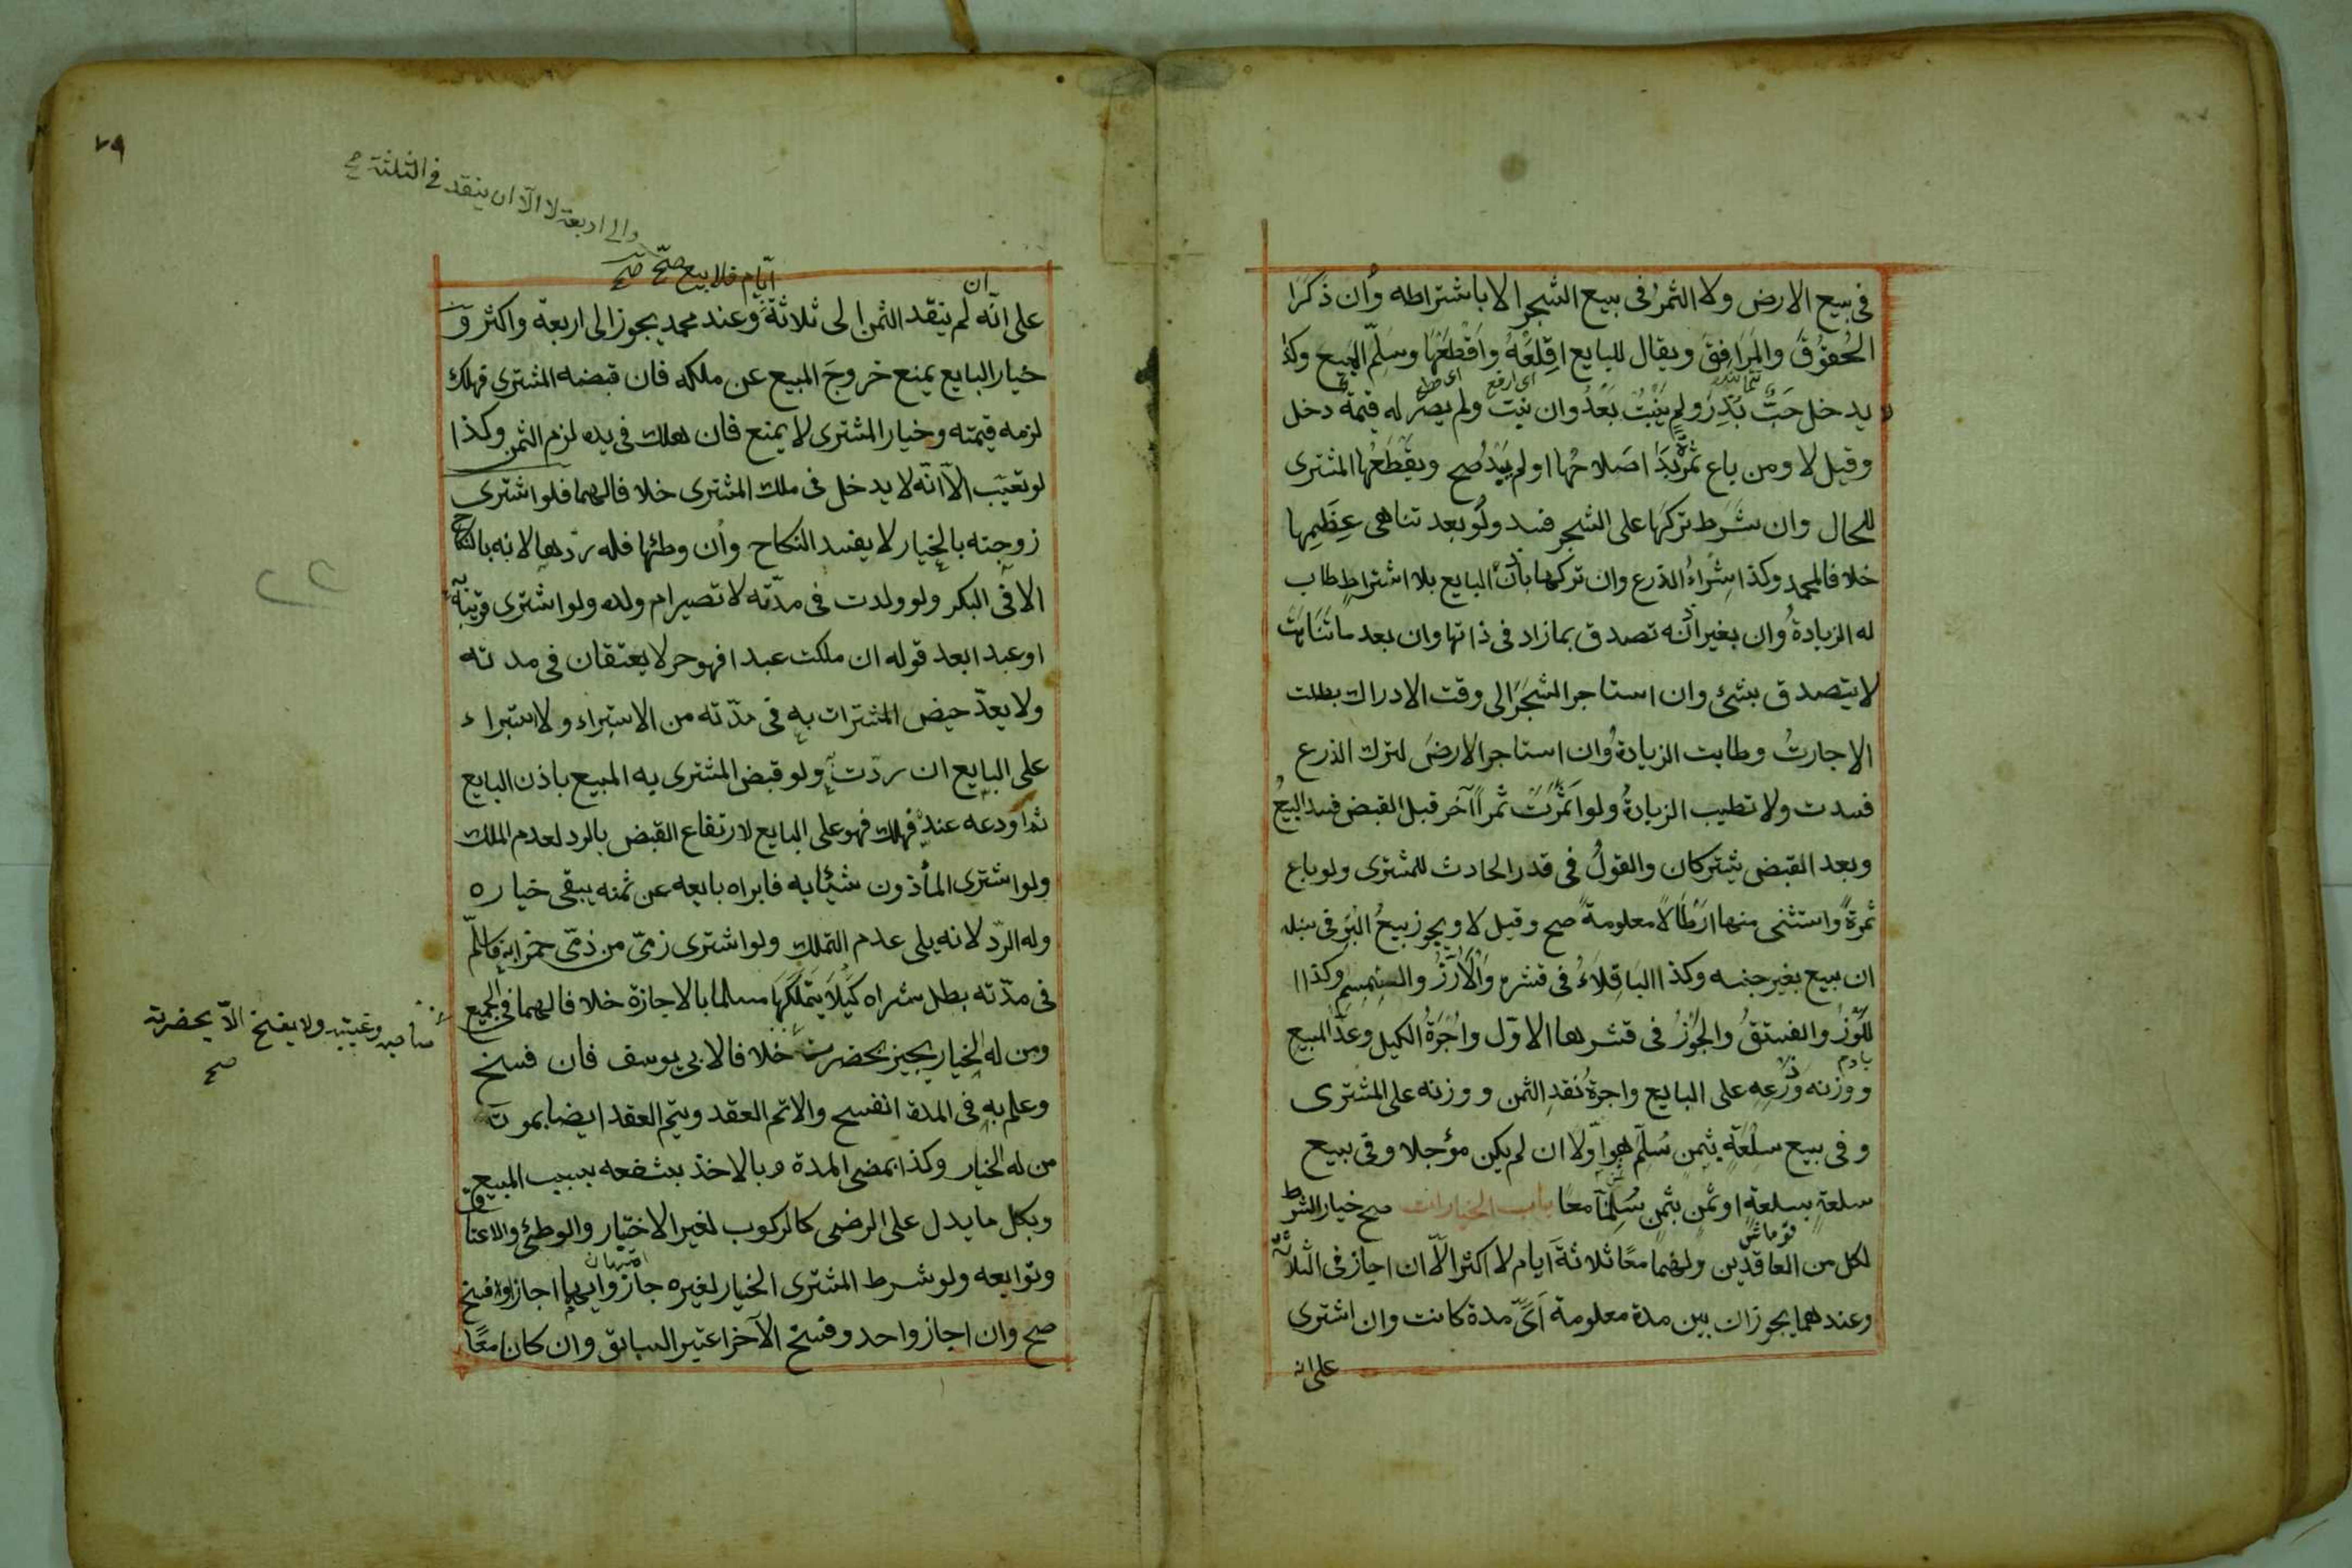 في بيع الارض ولا الثمرُ في بيع الشجر الا باشتراطه وان ذكرَا
الحُقوُقَ والمَرَافِقَ ويقال للبايع اقِلَعْهُ وَاقْطَعْهَا وسَلِّم المبيع وكذ
لا يدخل حَبٌّ بُذِرَ ولم يَنْبُتْ بَعْدُ وان نبت ولم يصر له قيمةٌ دخل
اى ارفع
وقيل لا ومن باع ثمرةً بَدَا صَلاحُها او لم يَبْدُ صح ويقطَعُها المشترى
للحال وان شَرَط تركَهَا على الشجر فسد ولَو بعد تناهى عِظَمِها
خلافا لمحمد وكذا شِراءُ الذرع وان تركها باذن البايع بلا اشتراطٍ طاب
له الزيادةُ وان بغير اذنه تصدق بمازاد فى ذاتها وان بعد ما تَنَاهَتْ
لا يتصدق بشئ وان استاجر الشجَرَ الى وقت الادراك بطلت
الاجارتُ وطابت الزيادةُ وان استاجر الارضَ لترك الذرع
فسدت ولا تطيب الزيادةُ ولو اَثمَرَتْ ثمراً آخر قبل القبض فسد البيعُ
وبعد القبض يشتركان والقولُ فى قدر الحادث للمشترى ولو باع
ثمرةً واستثنى منها ارْطَالًا معلومةً صح وقيل لا ويجوز بيعُ البُرِّ فى سنبله
ان بيع بغير جنسه وكذا البَاقِلَاءُ فى قشره وَالْأَرُزُّ والسِمسِم وكذا ا
للَوْزُ والفستقُ والجَوْزُ فى قشرها الاوّل واُجْرَةُ الكيل وعدّ المبيع
بادم
ووزنه وَذَرْعِه على البايع واجرةُ نقدِ الثمن ووزنه على المشترى
وفى بيع سلْعَةٍ بثمنٍ سُلِّم هو اوّلًا ان لم يكن مؤجلا وفى بيع
سلعةٍ بسلعةٍ او ثمنٍ بثمنٍ سُلِّمَا معًا باب الخيارات صح خيار الشرط
قوماش
لكل من العاقدين ولهما معًا ثلاثةَ ايام لا اكثر الّا ان اجاز فى الثلاثة
وعندهما يجوز ان بين مدة معلومة اَىَّ مدة كانت وان اشترى
على انه
٧٩
والى اربعة لا الّا ان ينقد فى الثلثة صح
ايّام فلا بيع صحّ صح
ان
على انّه لم ينقد الثمن الى ثلاثة وعند محمد يجوز الى اربعة واكثر وَ
خيار البايع يمنع خروجَ المبيع عن ملكه فان قبضه المشترى فهلك
لزمه قيمته وخيار المشترى لا يمنع فان هلك فى يده لزم الثمن وكذا
لو تعيّب الّا انّه لا يدخل فى ملك المشترى خلافا لهما فلو اشترى
زوجته بالخيار لا يفسد النكاح وان وطئها فله ردّها لانه بالنكاح
الا فى البكر ولو ولدت فى مدّته لا تصير ام ولده ولو اشترى قريبَه
او عبدا بعد قوله ان ملكت عبدا فهو حر لا يعتقان فى مدته
ولا يعدّ حيض المشترات به فى مدّته من الاستبراء ولا استبراء
على البايع ان ردّت به ولو قبض المشترى به المبيع باذن البايع
ثم اودعه عنده فهلك فهو على البايع لارتفاع القبض بالرد لعدم الملك
ولو اشترى المأذون شيئا به فابراه بايعه عن ثمنه يبقى خياره
وله الردّ لانه يلى عدم التملك ولو اشترى ذمىّ من ذمّى خمرا به فاسلم
فى مدّته بطل شراه كَيْلَا يَتَمَلَّكَهَا مسلما بالاجازة خلافا لهما فى الجميع
ومن له الخيار يجيز بحضرت خلافا لابى يوسف فان فسخ
صاحبه وغيبته ولا يفسخ الّا بحضرته
صح
وعلم به فى المدة انفسخ والا تم العقد ويتم العقد ايضا بموت
من له الخيار وكذا بمضى المدة وبالاخذ بشفعه بسبب المبيع
وبكل ما يدل على الرضى كالركوب لغير الاختبار والوطئ والاعتاق
وتوابعه ولو شرط المشترى الخيار لغيره جاز وايهما اجاز او فسخ
صح وان اجاز واحد وفسخ الآخر اعتبر السابق وان كان معًا